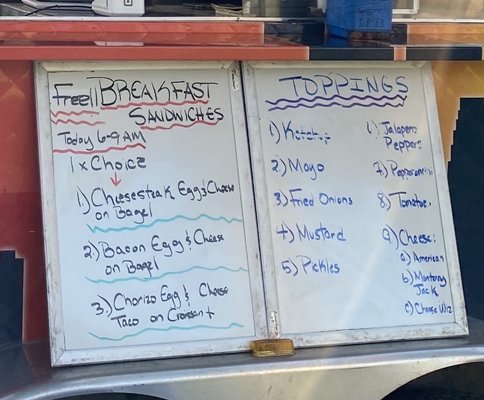 Free!! BREAKFAST
SANDWICHES
Today 6-9 AM
1 x Choice
1) Cheesesteak Egg & Cheese
on Bagel
2) Bacon Egg & Cheese
on Bagel
3) Chorizo Egg & Cheese
Taco on Croissant
TOPPINGS
1) Ketchup
2) Mayo
3) Fried Onions
4) Mustard
5) Pickles
6) Jalapeno
Peppers
7) Pepperoncini
8) Tomatoe
9) Cheese:
a) American
b) Monterey
Jack
c) Cheese Wiz